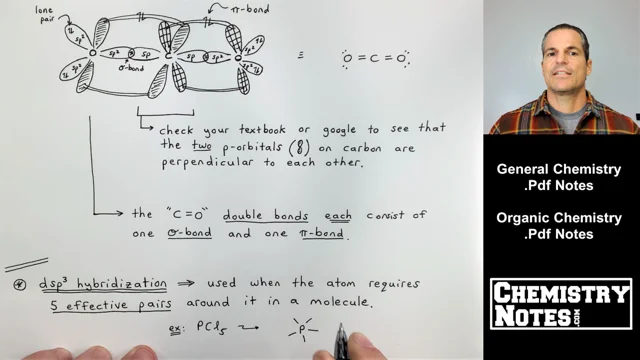 lone
pair
π-bond
sp²
sp²
sp²
C
sp
sp
sp²
O
sp²
sp²
σ-bond
≡
O=C=O
check your textbook or google to see that
the two p-orbitals (8) on carbon are
perpendicular to each other.
the "C=O" double bonds each consist of
one σ-bond and one π-bond.
dsp³ hybridization ⇒ used when the atom requires
5 effective pairs around it in a molecule.
ex: PCl₅ → P
General Chemistry
.Pdf Notes
Organic Chemistry
.Pdf Notes
CHEMISTRY
NOTES.COM